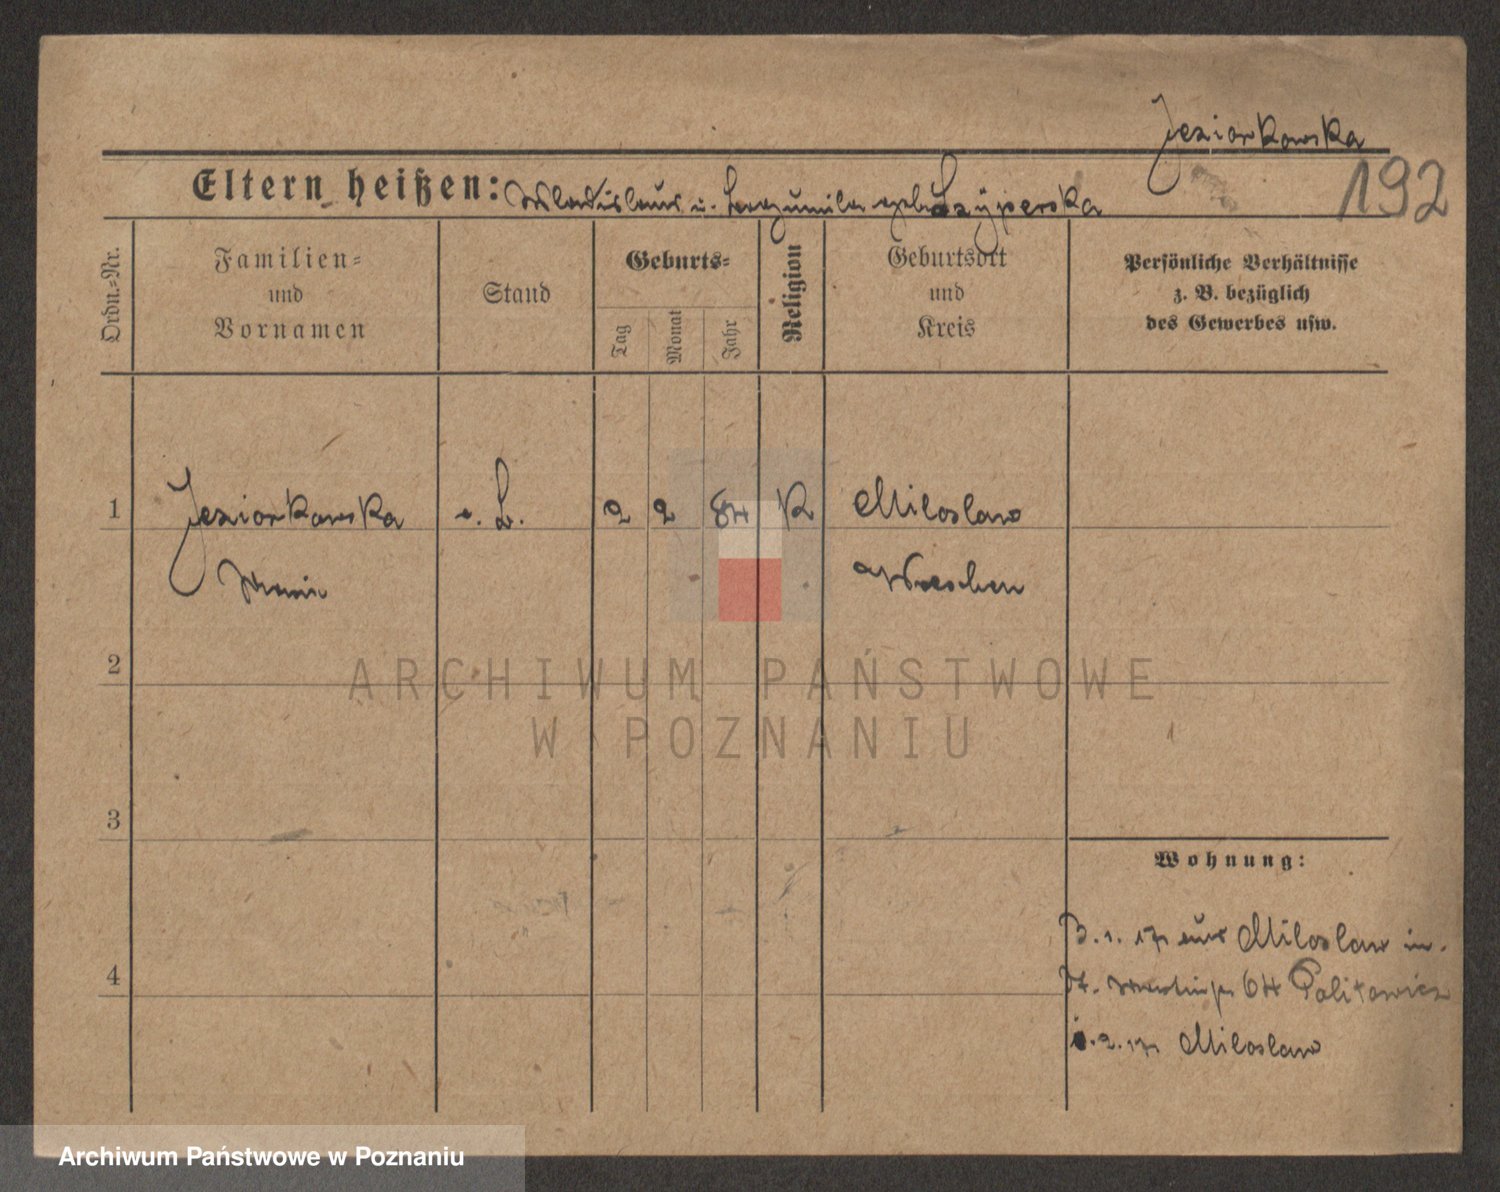 Jeziorkowska
192
Eltern heißen: Wladislaus u. geb. Szyperska
Ordn.-Nr.
Familien-
und
Vornamen
Stand
Geburts-
Tag
Monat
Jahr
Religion
Geburtsort
und
Kreis
Persönliche Verhältnisse
z. B. bezüglich
des Gewerbes usw.
1 Jeziorkowska 2 2 84 K Miloslaw
Wreschen
2
ARCHIWUM PAŃSTWOWE
W POZNANIU
3
Wohnung:
3. 1. 17 aus Miloslaw in
4
St. Martinstr 64
2. 17 Miloslaw
Archiwum Państwowe w Poznaniu